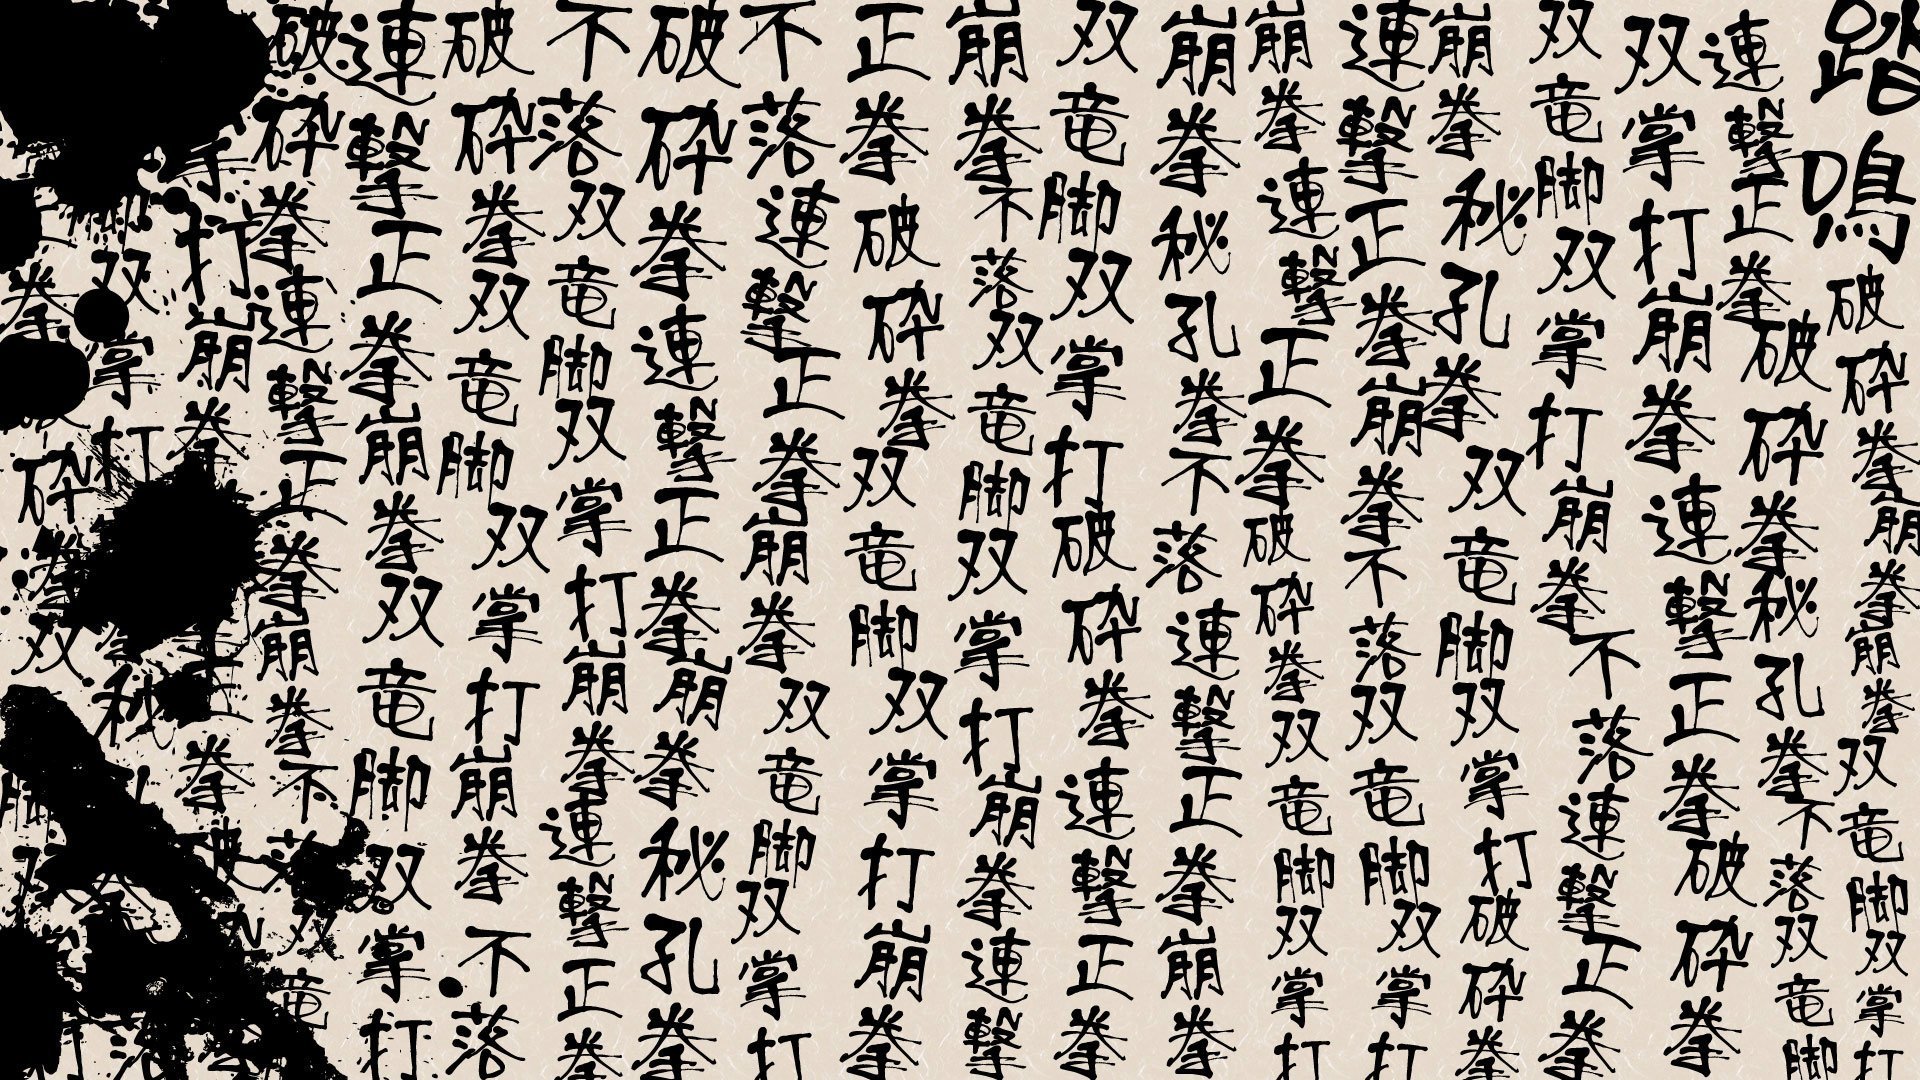 踏鳴破砕拳崩拳崩拳双竜脚双掌打
連撃正拳破砕拳秘孔拳不落双竜脚
双掌打崩拳連撃正拳破砕拳
双竜脚双掌打崩拳不落連撃正拳
崩拳秘孔拳双竜脚双掌打破砕拳
連撃正拳崩拳不落双竜脚双掌打
崩拳連撃正拳破砕拳双竜脚双掌打
崩拳秘孔拳不落連撃正拳崩拳
双竜脚双掌打破砕拳連撃正拳
崩拳不落双竜脚双掌打崩拳連撃
正拳破砕拳双竜脚双掌打崩拳
不落連撃正拳崩拳双竜脚双掌打
破砕拳連撃正拳崩拳秘孔拳
不落双竜脚双掌打崩拳連撃正拳
破砕拳双竜脚双掌打崩拳不落
連撃正拳崩拳双竜脚双掌打
破砕拳連撃正拳崩拳不落双竜
打崩拳拳破
双掌打秘
拳砕拳双脚